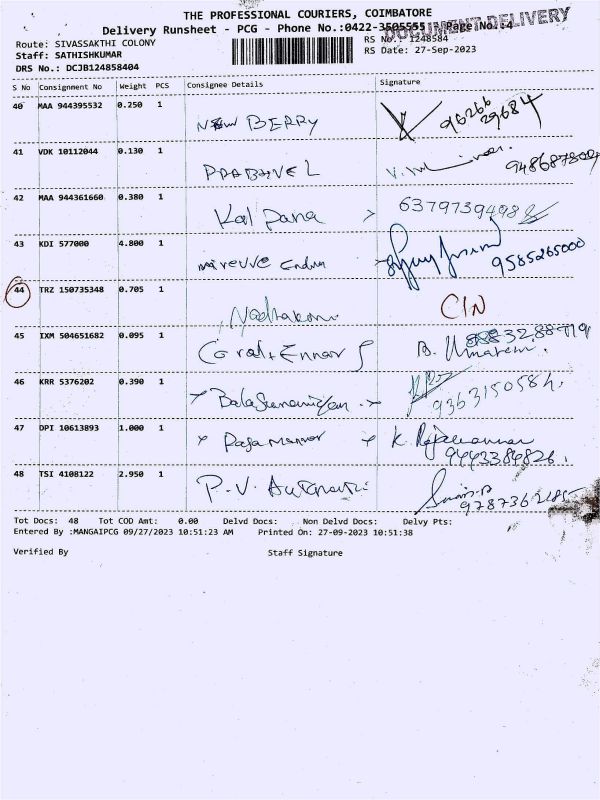 THE PROFESSIONAL COURIERS, COIMBATORE
DOCUMENT DELIVERY
Delivery Runsheet - PCG - Phone No.:0422-3505555 Page No.:4
Route: SIVASSAKTHI COLONY RS No.: 1248584
Staff: SATHISHKUMAR RS Date: 27-Sep-2023
DRS No.: DCJB124858404
S No Consignment No Weight PCS Consignee Details Signature
40 MAA 944395532 0.250 1 NEW BERRY 96266 29684
41 VDK 10112044 0.130 1 PRABAVEL
42 MAA 944361660 0.380 1 Kalpana 6379739498
43 KDI 577000 4.800 1 9585265000
44 TRZ 150735348 0.705 1 CIN
45 IXM 504651682 0.095 1 B.
46 KRR 5376202 0.390 1 9363150584.
47 DPI 10613893 1.000 1 x Rajamannar x K. Rajamannar
9443384826.
48 TSI 4108122 2.950 1 P.V.
Tot Docs: 48 Tot COD Amt: 0.00 Delvd Docs: Non Delvd Docs: Delvy Pts:
Entered By :MANGAIPCG 09/27/2023 10:51:23 AM Printed On: 27-09-2023 10:51:38
Verified By Staff Signature